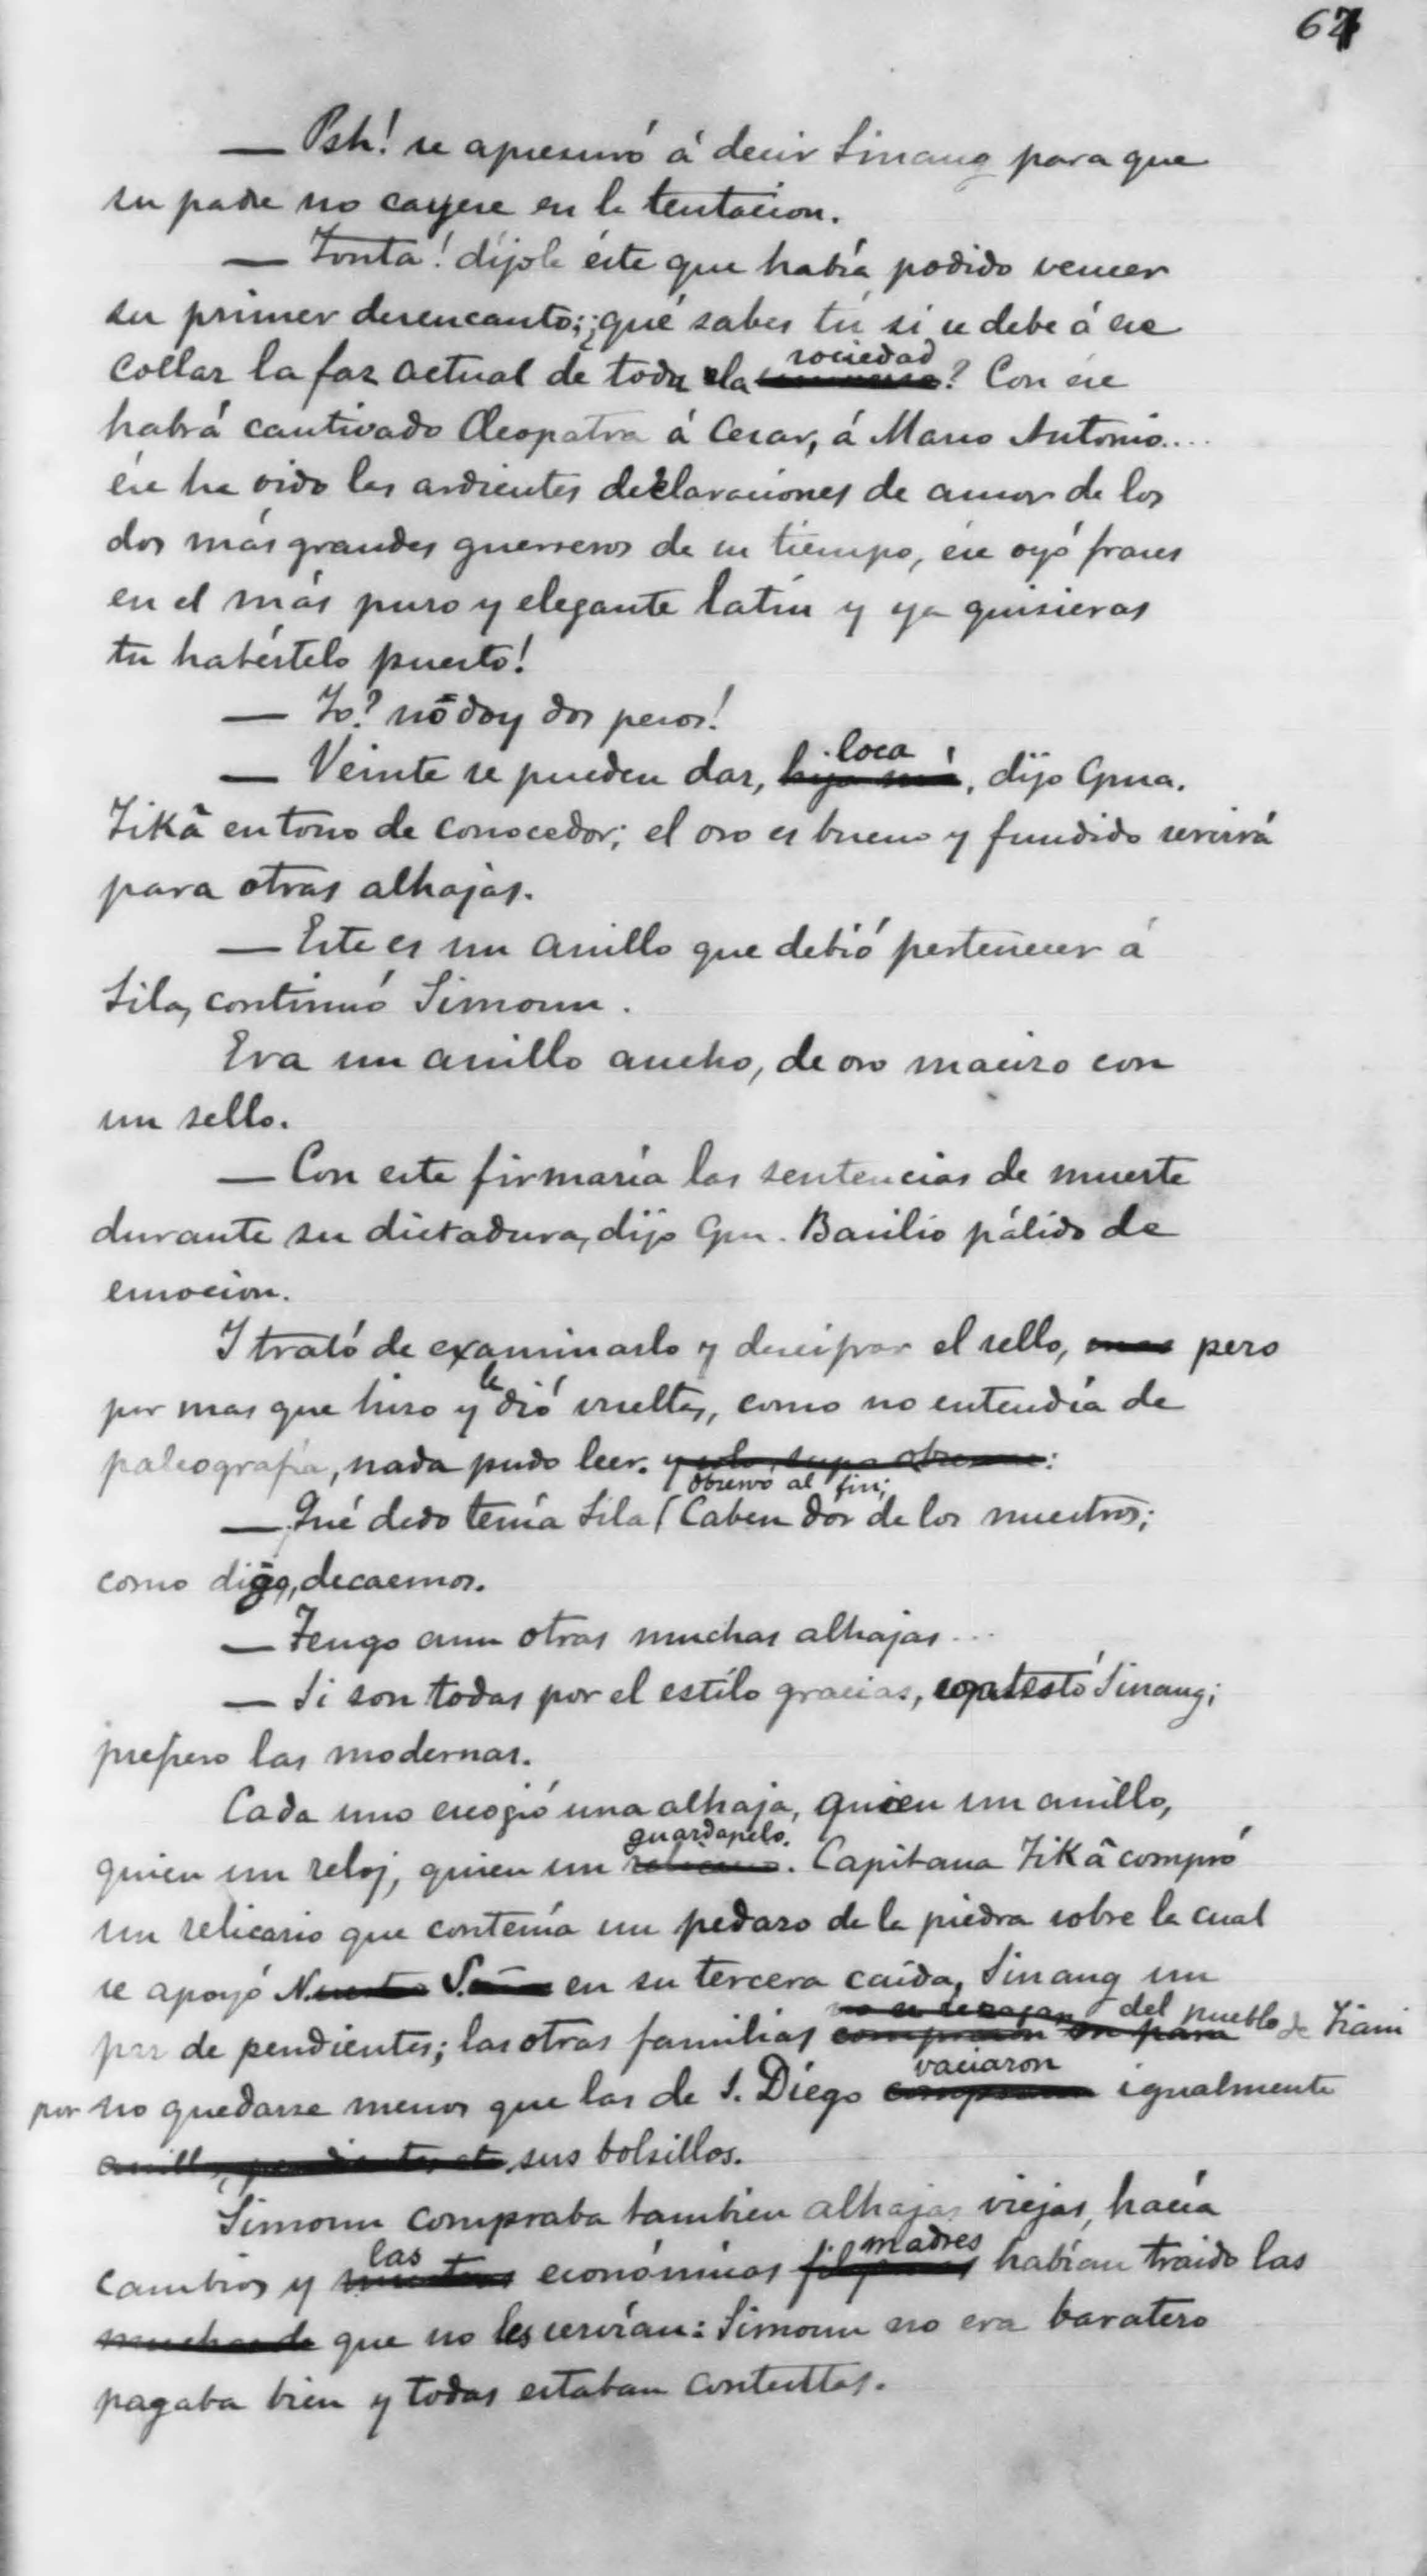 67
— Psh! se apresuró á decir Sinang para que
su padre no cayese en la tentacion.
— Tonta! díjole éste que había podido vencer
su primer desencanto; ¿qué sabes tú si se debe á ese
collar la faz actual de toda la sociedad? Con ése
habrá cautivado Cleopatra á Cesar, á Marco Antonio....
ése ha oido las ardientes declaraciones de amor de los
dos más grandes guerreros de su tiempo, ése oyó frases
en el más puro y elegante latin y ya quisieras
tu habértelo puesto!
— Yo? no doy dos pesos!
— Veinte se pueden dar, loca, dijo Cpna.
Tikâ en tono de conocedor; el oro es bueno y fundido servirá
para otras alhajas.
— Este es un anillo que debió pertenecer á
Sila, continuó Simoun.
Era un anillo ancho, de oro macizo con
un sello.
— Con este firmaría las sentencias de muerte
durante su dictadura, dijo Cpn. Basilio pálido de
emocion.
Y trató de examinarlo y descifrar el sello, pero
por mas que hizo y le dió vueltas, como no entendía de
paleografía, nada pudo leer.
— Qué dedo tenía Sila! observó al fin; Caben dos de los nuestros;
como digo, decaemos.
— Tengo aun otras muchas alhajas...
— Si son todas por el estilo gracias, contestó Sinang;
prefiero las modernas.
Cada uno escogió una alhaja, quien un anillo,
quien un reloj, quien un guardapelo. Capitana Tikâ compró
un relicario que contenía un pedazo de la piedra sobre la cual
se apoyó N. S. en su tercera caída, Sinang un
par de pendientes; las otras familias del pueblo de Tiani
por no quedarse menos que las de S. Diego vaciaron igualmente
sus bolsillos.
Simoun compraba tambien alhajas viejas, hacía
cambios y las económicas madres habían traido las
que no les servían: Simoun no era baratero
pagaba bien y todas estaban contentas.